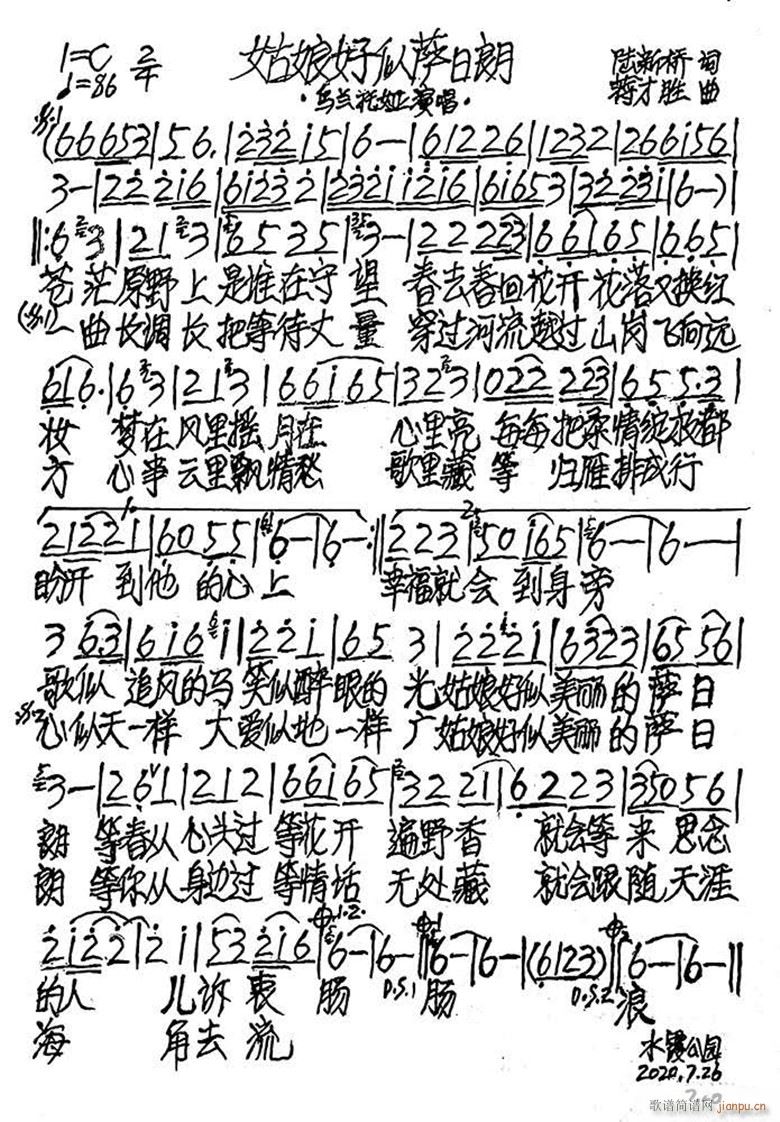 1=C 2/4 姑娘好似萨日朗 陆新桥 词
♩=86 ·乌兰托娅演唱· 蒋才胜 曲
(66653|56.|23215|6-|61226|1232|266156|
3-|222216|61232|2321216|61653|322231|6-)|
‖:63|213|6535|3-|22223|66165|665|
苍茫原野上是谁在守望 春去春回花开花落又换红
一曲长调长把等待丈量 穿过河流越过山岗飞向远
616.|63|213|66165|323|022223|6553|
妆 梦在风里摇月在 心里亮 每每把柔情绽放都
方 心事云里飘情愁 歌里藏 等 归雁排成行
21221|6055|6-|6-:‖223|50165|6-|6-—|
盼开 到他 的心上 幸福就会 到身旁
363|6161|221|653|22221|63323|6556|
歌似 追风的马 笑似醉眼的 光姑娘好似美丽的萨日
心似天一样 大爱似地一样 广姑娘好似美丽的萨日
3-|261|2122|66165|32221|6223|35056|
朗 等春从心头过 等花开 遍野香 就会等来思念
朗 等你从身边过 等情话 无处藏 就会跟随天涯
2122|21|53216|6-|6-‖6-|6-|(6123)‖6-|6-‖
D.S.1 D.S.2
的人 儿诉衷 肠 肠 浪
海 角去流
水霞公园
2020.7.26
歌谱简谱网 jianpu.cn